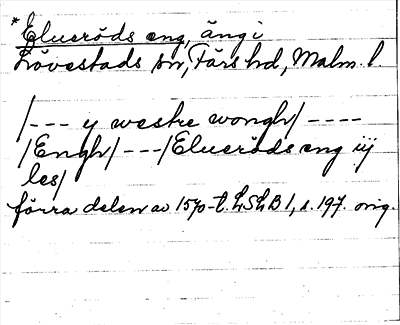 *Elueröds eng, äng i
Lövestads sn, Färs hd, Malm. l.
/--- y westre wongh/ ----
/Engh/ ---/Elueröds eng iij
les/
förra delen av 1570-t. LSLB 1, s. 197. orig.